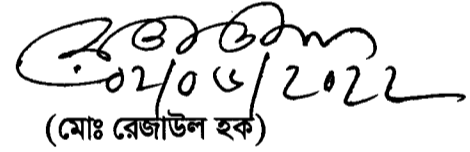 ০২/০৬/২০২২
(মোঃ রেজাউল হক)